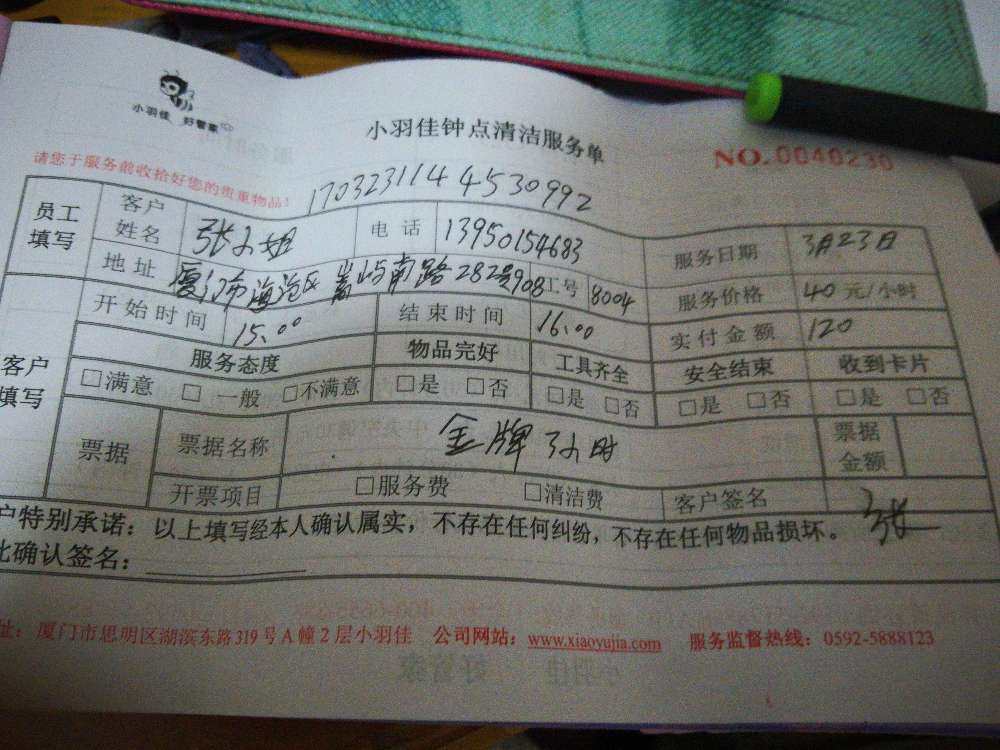 小羽佳 好管家
小羽佳钟点清洁服务单
NO.0040230
请您于服务前收拾好您的贵重物品!
170323114 4530992
员工填写 客户姓名 张小姐 电话 13950154683 服务日期 3月23日
地址 厦门市海沧区嵩屿南路282号908 工号 8004 服务价格 40元/小时
开始时间 15:00 结束时间 16:00 实付金额 120
客户填写 服务态度 物品完好 工具齐全 安全结束 收到卡片
□满意 □一般 □不满意 □是 □否 □是 □否 □是 □否 □是 □否
票据 票据名称 金牌 3小时 票据金额
开票项目 □服务费 □清洁费 客户签名 张
户特别承诺：以上填写经本人确认属实，不存在任何纠纷，不存在任何物品损坏。
此确认签名：
址：厦门市思明区湖滨东路319号A幢2层小羽佳 公司网站：www.xiaoyujia.com 服务监督热线：0592-5888123